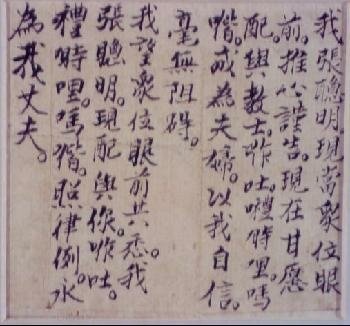 我張聰明。現當衆位眼
前。推心謹告。現在甘愿
配與教士。咋吐。禮時哩。嗎
喈。成為夫婦。以我自信。
毫無阻碍。
我望衆位眼前共悉。我
張聰明。現配與你。咋吐。
禮時哩。嗎喈。照律例。永
為我丈夫。